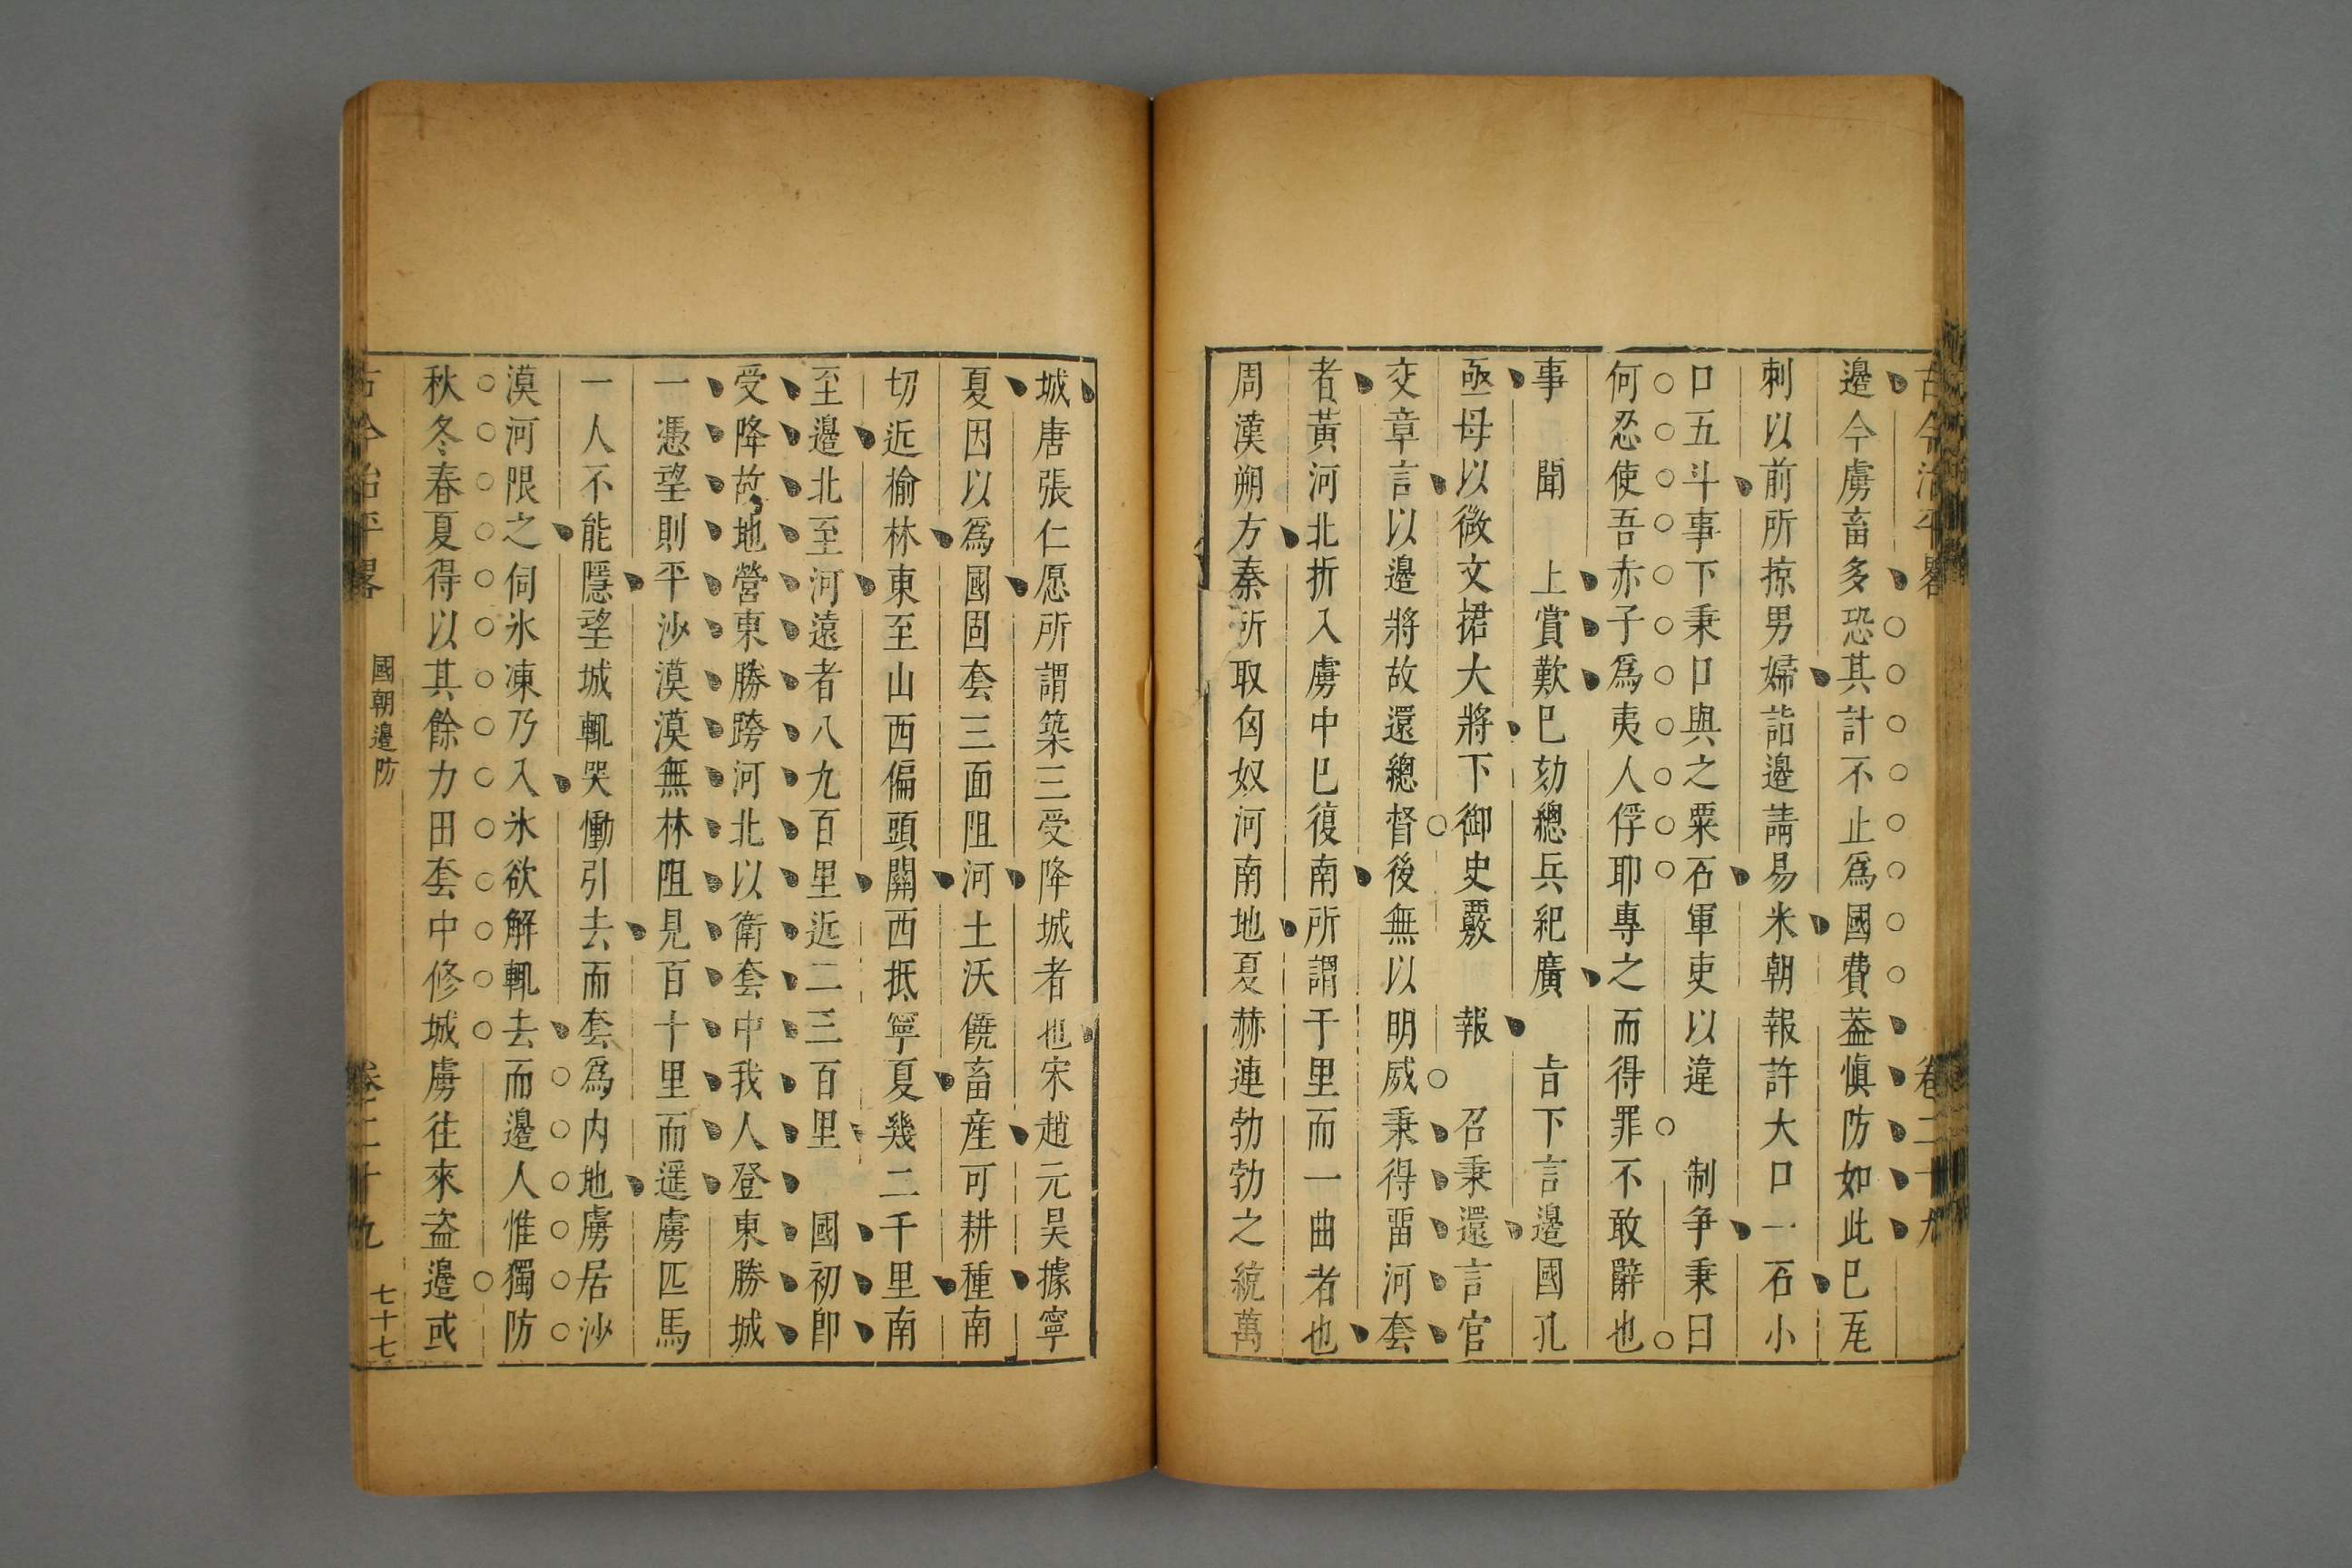 古今治平畧 卷二十九
邉今虜畜多恐其計不止爲國費葢愼防如此巳厖
刺以前所掠男婦詣邉請易米朝報許大口一石小
口五斗事下秉口與之粟石軍吏以違 制爭秉曰
何忍使吾赤子爲夷人俘耶專之而得罪不敢辭也
事 聞 上賞歎巳劾總兵紀廣 㫖下言邉國孔
亟毋以微文捃大將下御史覈 報 召秉還言官
交章言以邉將故還總督後無以明威秉得畱河套
者黃河北折入虜中巳復南所謂千里而一曲者也
周漢朔方秦所取匈奴河南地夏赫連勃勃之統萬
城唐張仁愿所謂築三受降城者也宋趙元昊據寧
夏因以爲國固套三面阻河土沃饒畜産可耕種南
切近榆林東至山西偏頭關西抵寧夏幾二千里南
至邉北至河遠者八九百里近二三百里 國初卽
受降故地營東勝跨河北以衛套中我人登東勝城
一憑望則平沙漠漠無林阻見百十里而遥虜匹馬
一人不能隱望城輒哭慟引去而套爲内地虜居沙
漠河限之伺氷凍乃入氷欲解輒去而邉人惟獨防
秋冬春夏得以其餘力田套中修城虜往來盗邉或
古今治平畧 國朝邉防 卷二十九 七十七